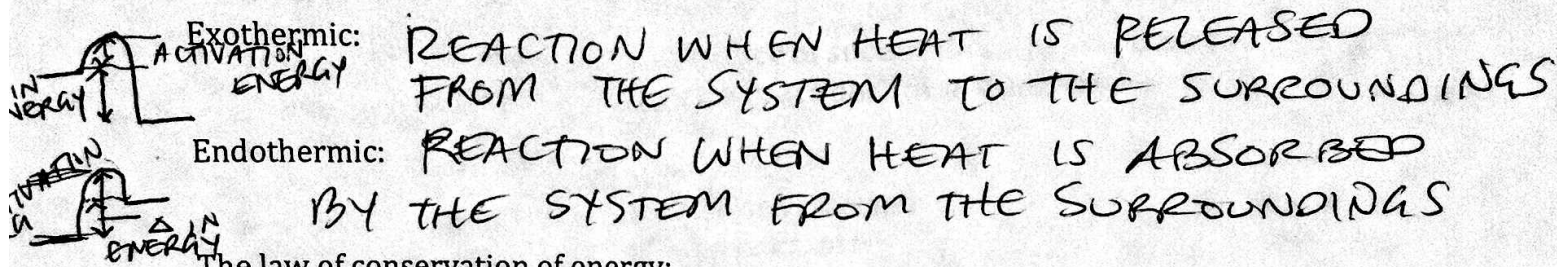 Exothermic: REACTION WHEN HEAT IS RELEASED
ACTIVATION
ENERGY
FROM THE SYSTEM TO THE SURROUNDINGS
IN
Endothermic: REACTION WHEN HEAT IS ABSORBED
BY THE SYSTEM FROM THE SURROUNDINGS
Δ IN
ENERGY
The law of conservation of energy: